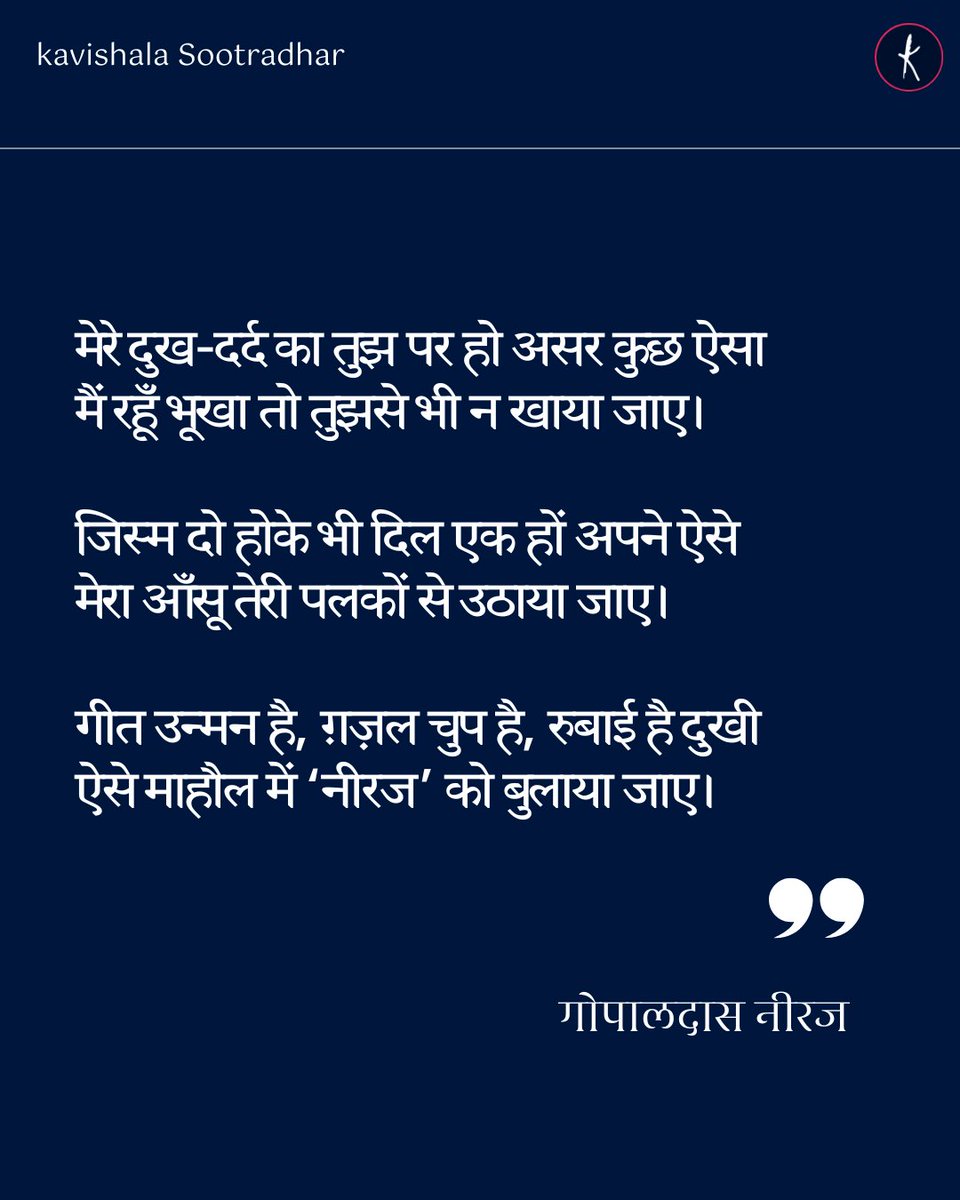 kavishala Sootradhar
मेरे दुख-दर्द का तुझ पर हो असर कुछ ऐसा
मैं रहूँ भूखा तो तुझसे भी न खाया जाए।
जिस्म दो होके भी दिल एक हों अपने ऐसे
मेरा आँसू तेरी पलकों से उठाया जाए।
गीत उन्मन है, ग़ज़ल चुप है, रुबाई है दुखी
ऐसे माहौल में ‘नीरज’ को बुलाया जाए।
”
गोपालदास नीरज